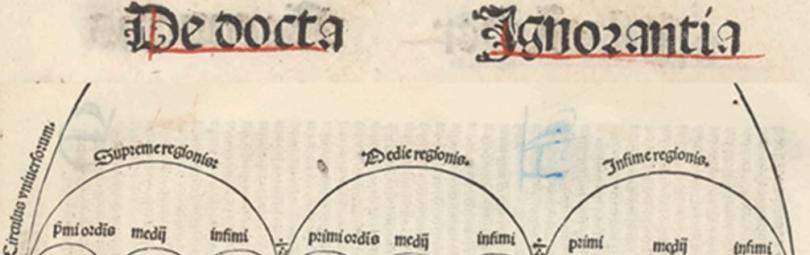 De docta Ignorantia
Circulus vniuersorum.
Supreme regionis:
Medie regionis.
Infime regionis.
p̄mi ordīs medij infimi
primi ordīs medij infimi
primi medij infimi